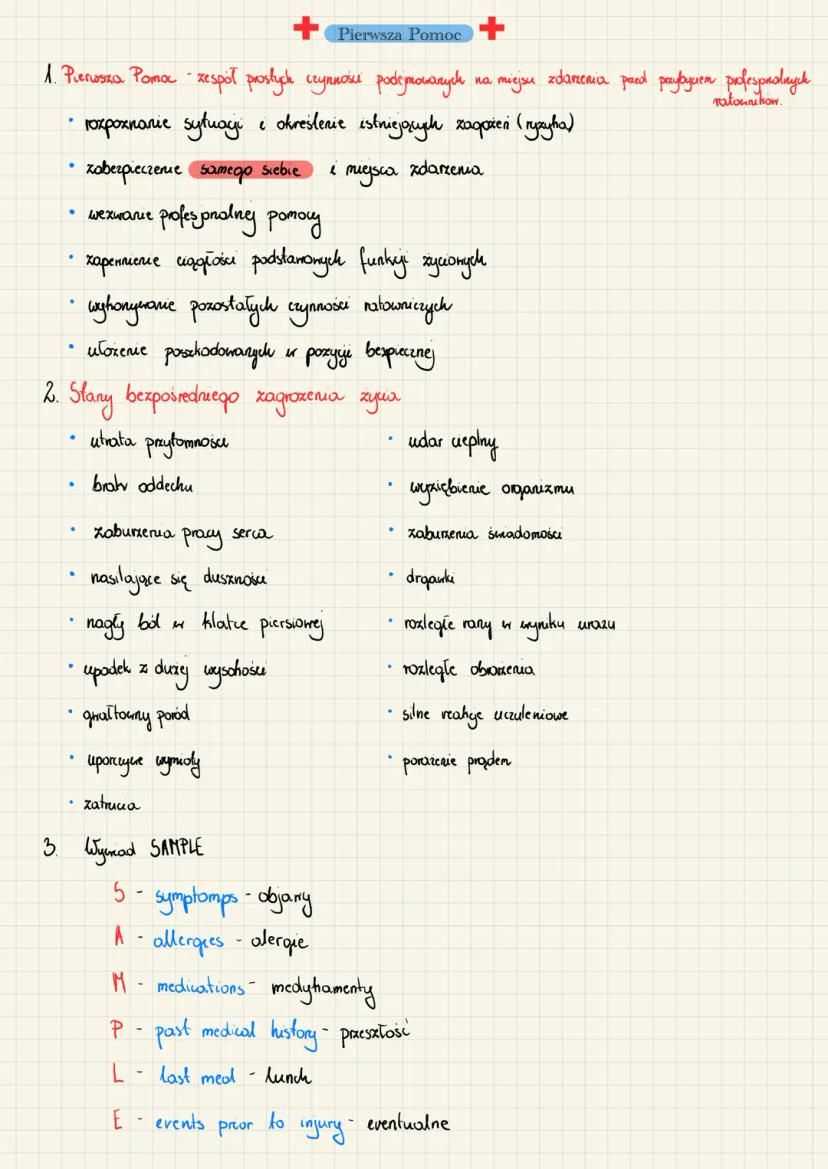 Pierwsza Pomoc
1. Pierwsza Pomoc - zespół prostych czynności podejmowanych na miejscu zdarzenia przed przybyciem profesjonalnych
ratowników.
• rozpoznanie sytuacji i określenie istniejących zagrożeń (ryzyka)
• zabezpieczenie samego siebie i miejsca zdarzenia
• wezwanie profesjonalnej pomocy
• zapewnienie ciągłości podstawowych funkcji życiowych
• wykonywanie pozostałych czynności ratowniczych
• ułożenie poszkodowanych w pozycji bezpiecznej
2. Stany bezpośredniego zagrożenia życia
• utrata przytomności
• brak oddechu
• zaburzenia pracy serca
• nasilające się duszności
• nagły ból w klatce piersiowej
• upadek z dużej wysokości
• gwałtowny poród
• uporczywe wymioty
• zatrucia
• udar cieplny
• wyziębienie organizmu
• zaburzenia świadomości
• drgawki
• rozległe rany w wyniku urazu
• rozległe obrażenia
• silne reakcje uczuleniowe
• porażenie prądem
3. Wywiad SAMPLE
S - symptomps - objawy
A - allergies - alergie
M - medications - medykamenty
P - past medical history - przeszłość
L - last meal - lunch
E - events prior to injury - eventualne